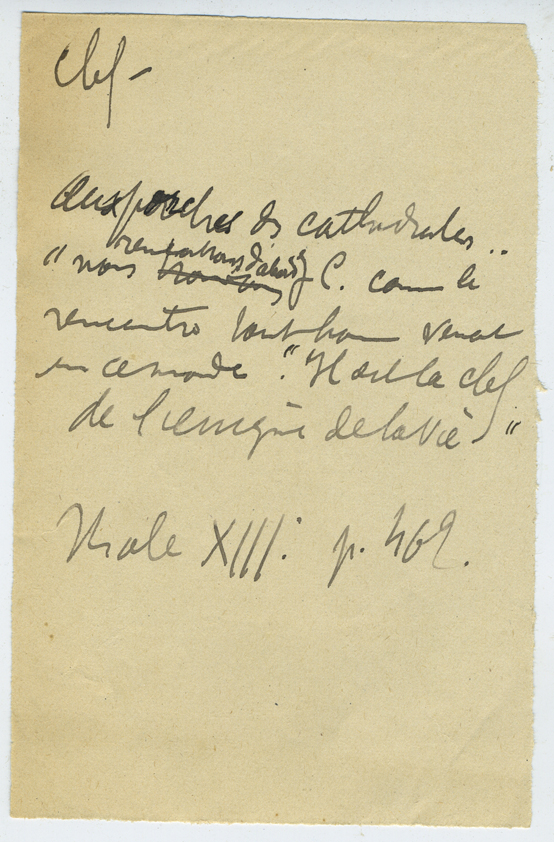 Clef –
Aux porches des cathédrales..
rencontrons d'abord
"nous trouvons J C. comme le
rencontre tout homme venant
en ce monde". "Il est la clef
de l'énigme de la vie"
Male XIII: p. 462.